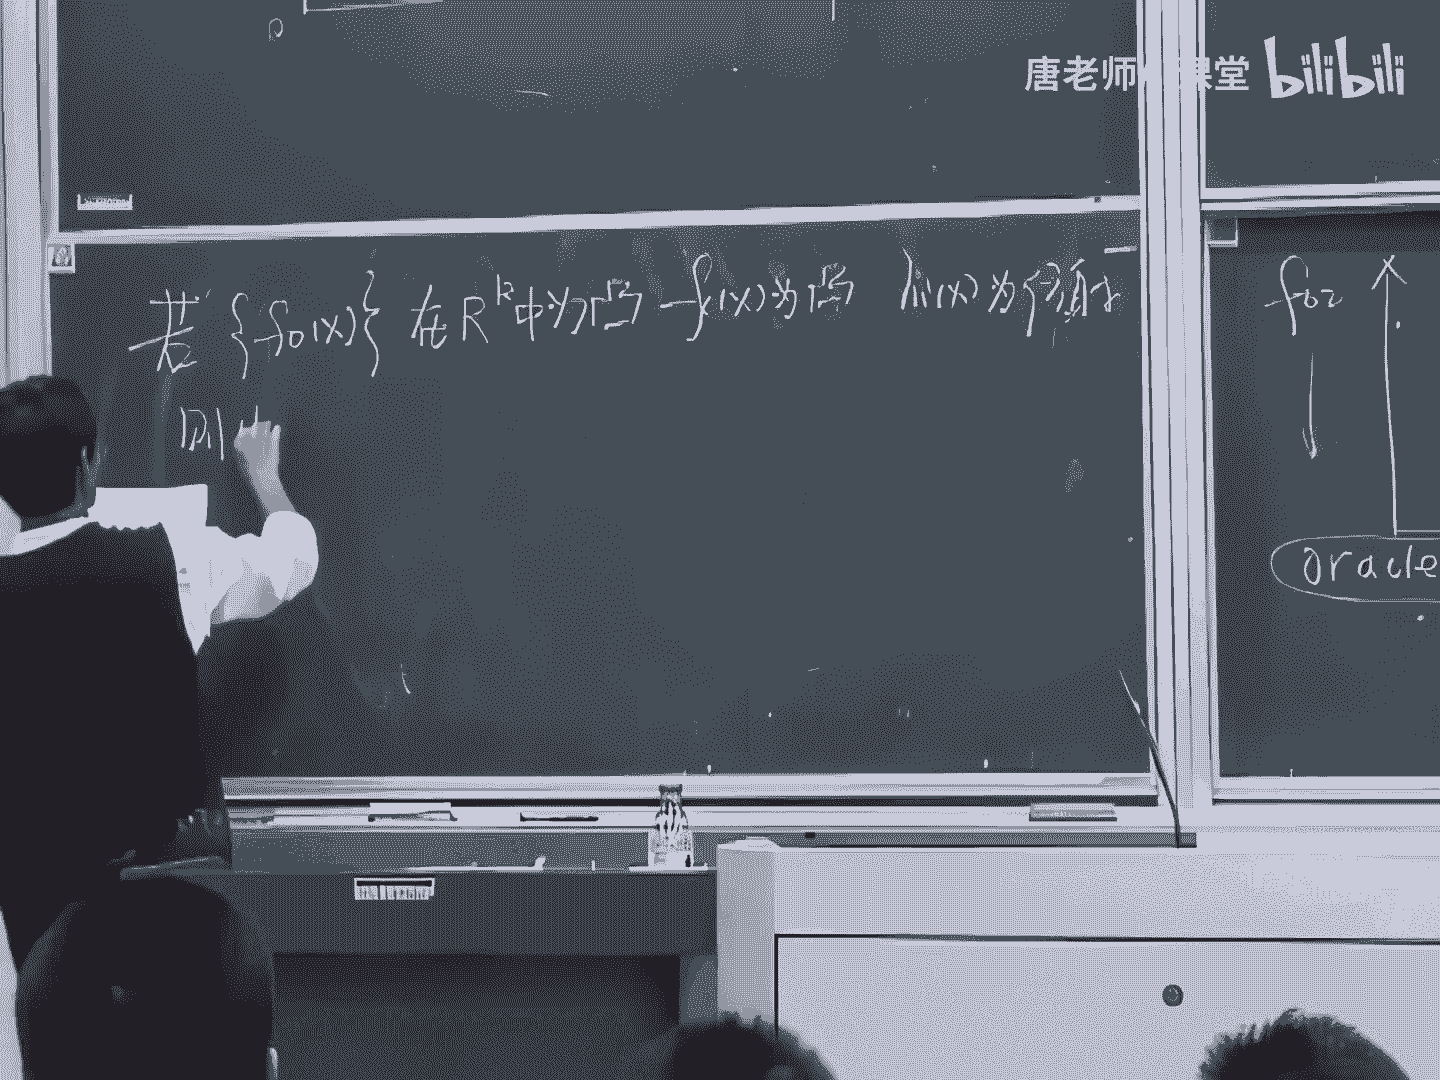 唐老师 课堂 bilibili
若 {f₀(x)} 在 Rᵏ 中为凸 fᵢ(x) 为凸 hᵢ(x) 为仿射
则
f₀₂
oracle